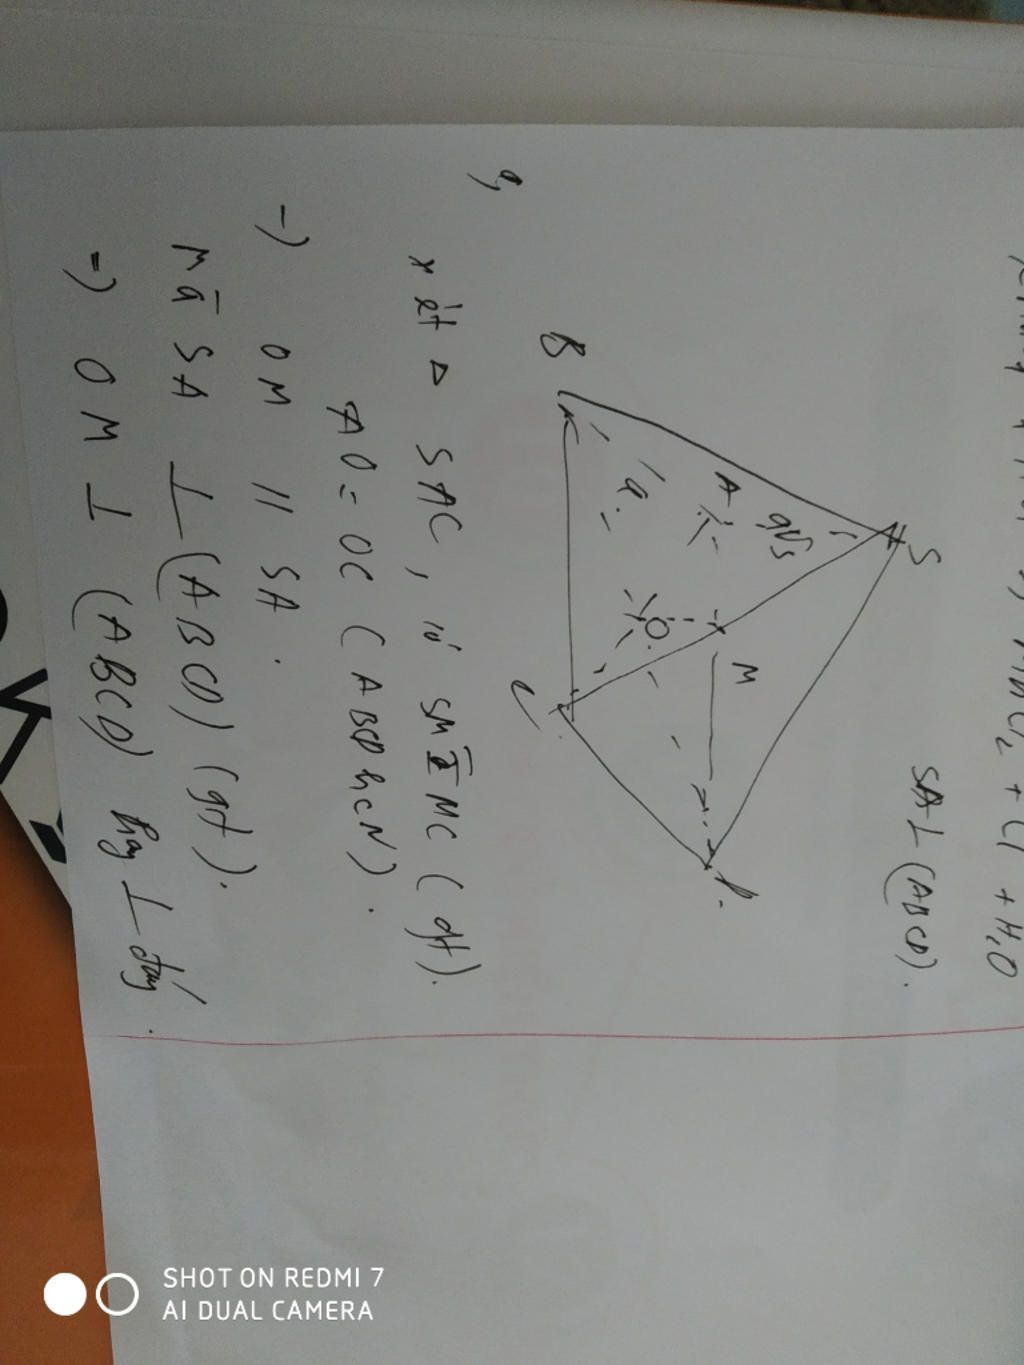 MnCl₂ + Cl + H₂O
SA ⊥ (ABCD).
S
A
a√3
a
B
M
O
C
D.
a,
xét Δ SAC, có SM = MC (gt).
AO = OC (ABCD hcN).
-) OM // SA.
Mà SA ⊥ (ABCD) (gt).
=) OM ⊥ (ABCD) hay ⊥ đáy.
SHOT ON REDMI 7
AI DUAL CAMERA